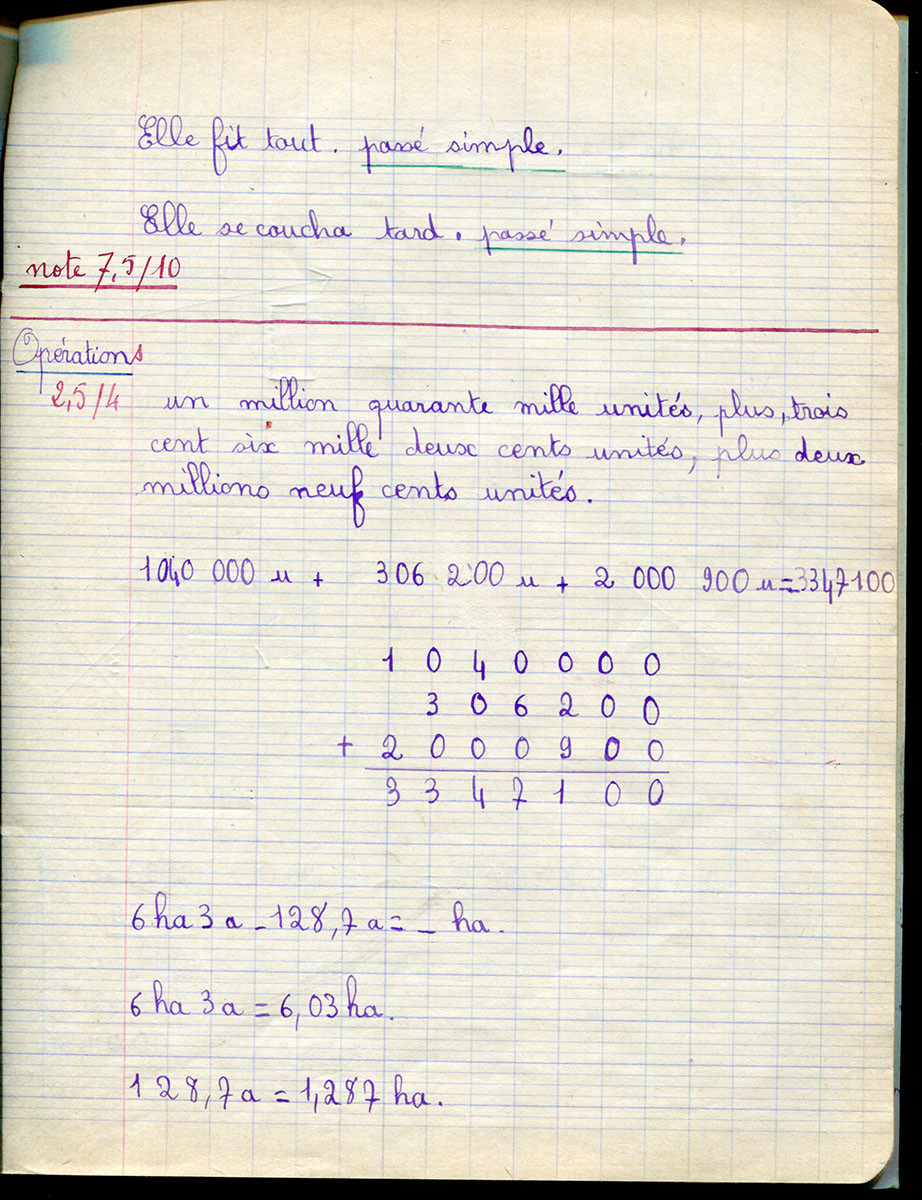 Elle fit tout. passé simple.
Elle se coucha tard. passé simple.
note 7,5/10
Opérations
2,5/4
un million quarante mille unités, plus, trois
cent six mille deux cents unités, plus deux
millions neuf cents unités.
1040 000 u + 306 200 u + 2 000 900 u = 3347100
1 0 4 0 0 0 0
3 0 6 2 0 0
+ 2 0 0 0 9 0 0
3 3 4 7 1 0 0
6 ha 3 a - 128,7 a = _ ha.
6 ha 3 a = 6,03 ha.
128,7 a = 1,287 ha.